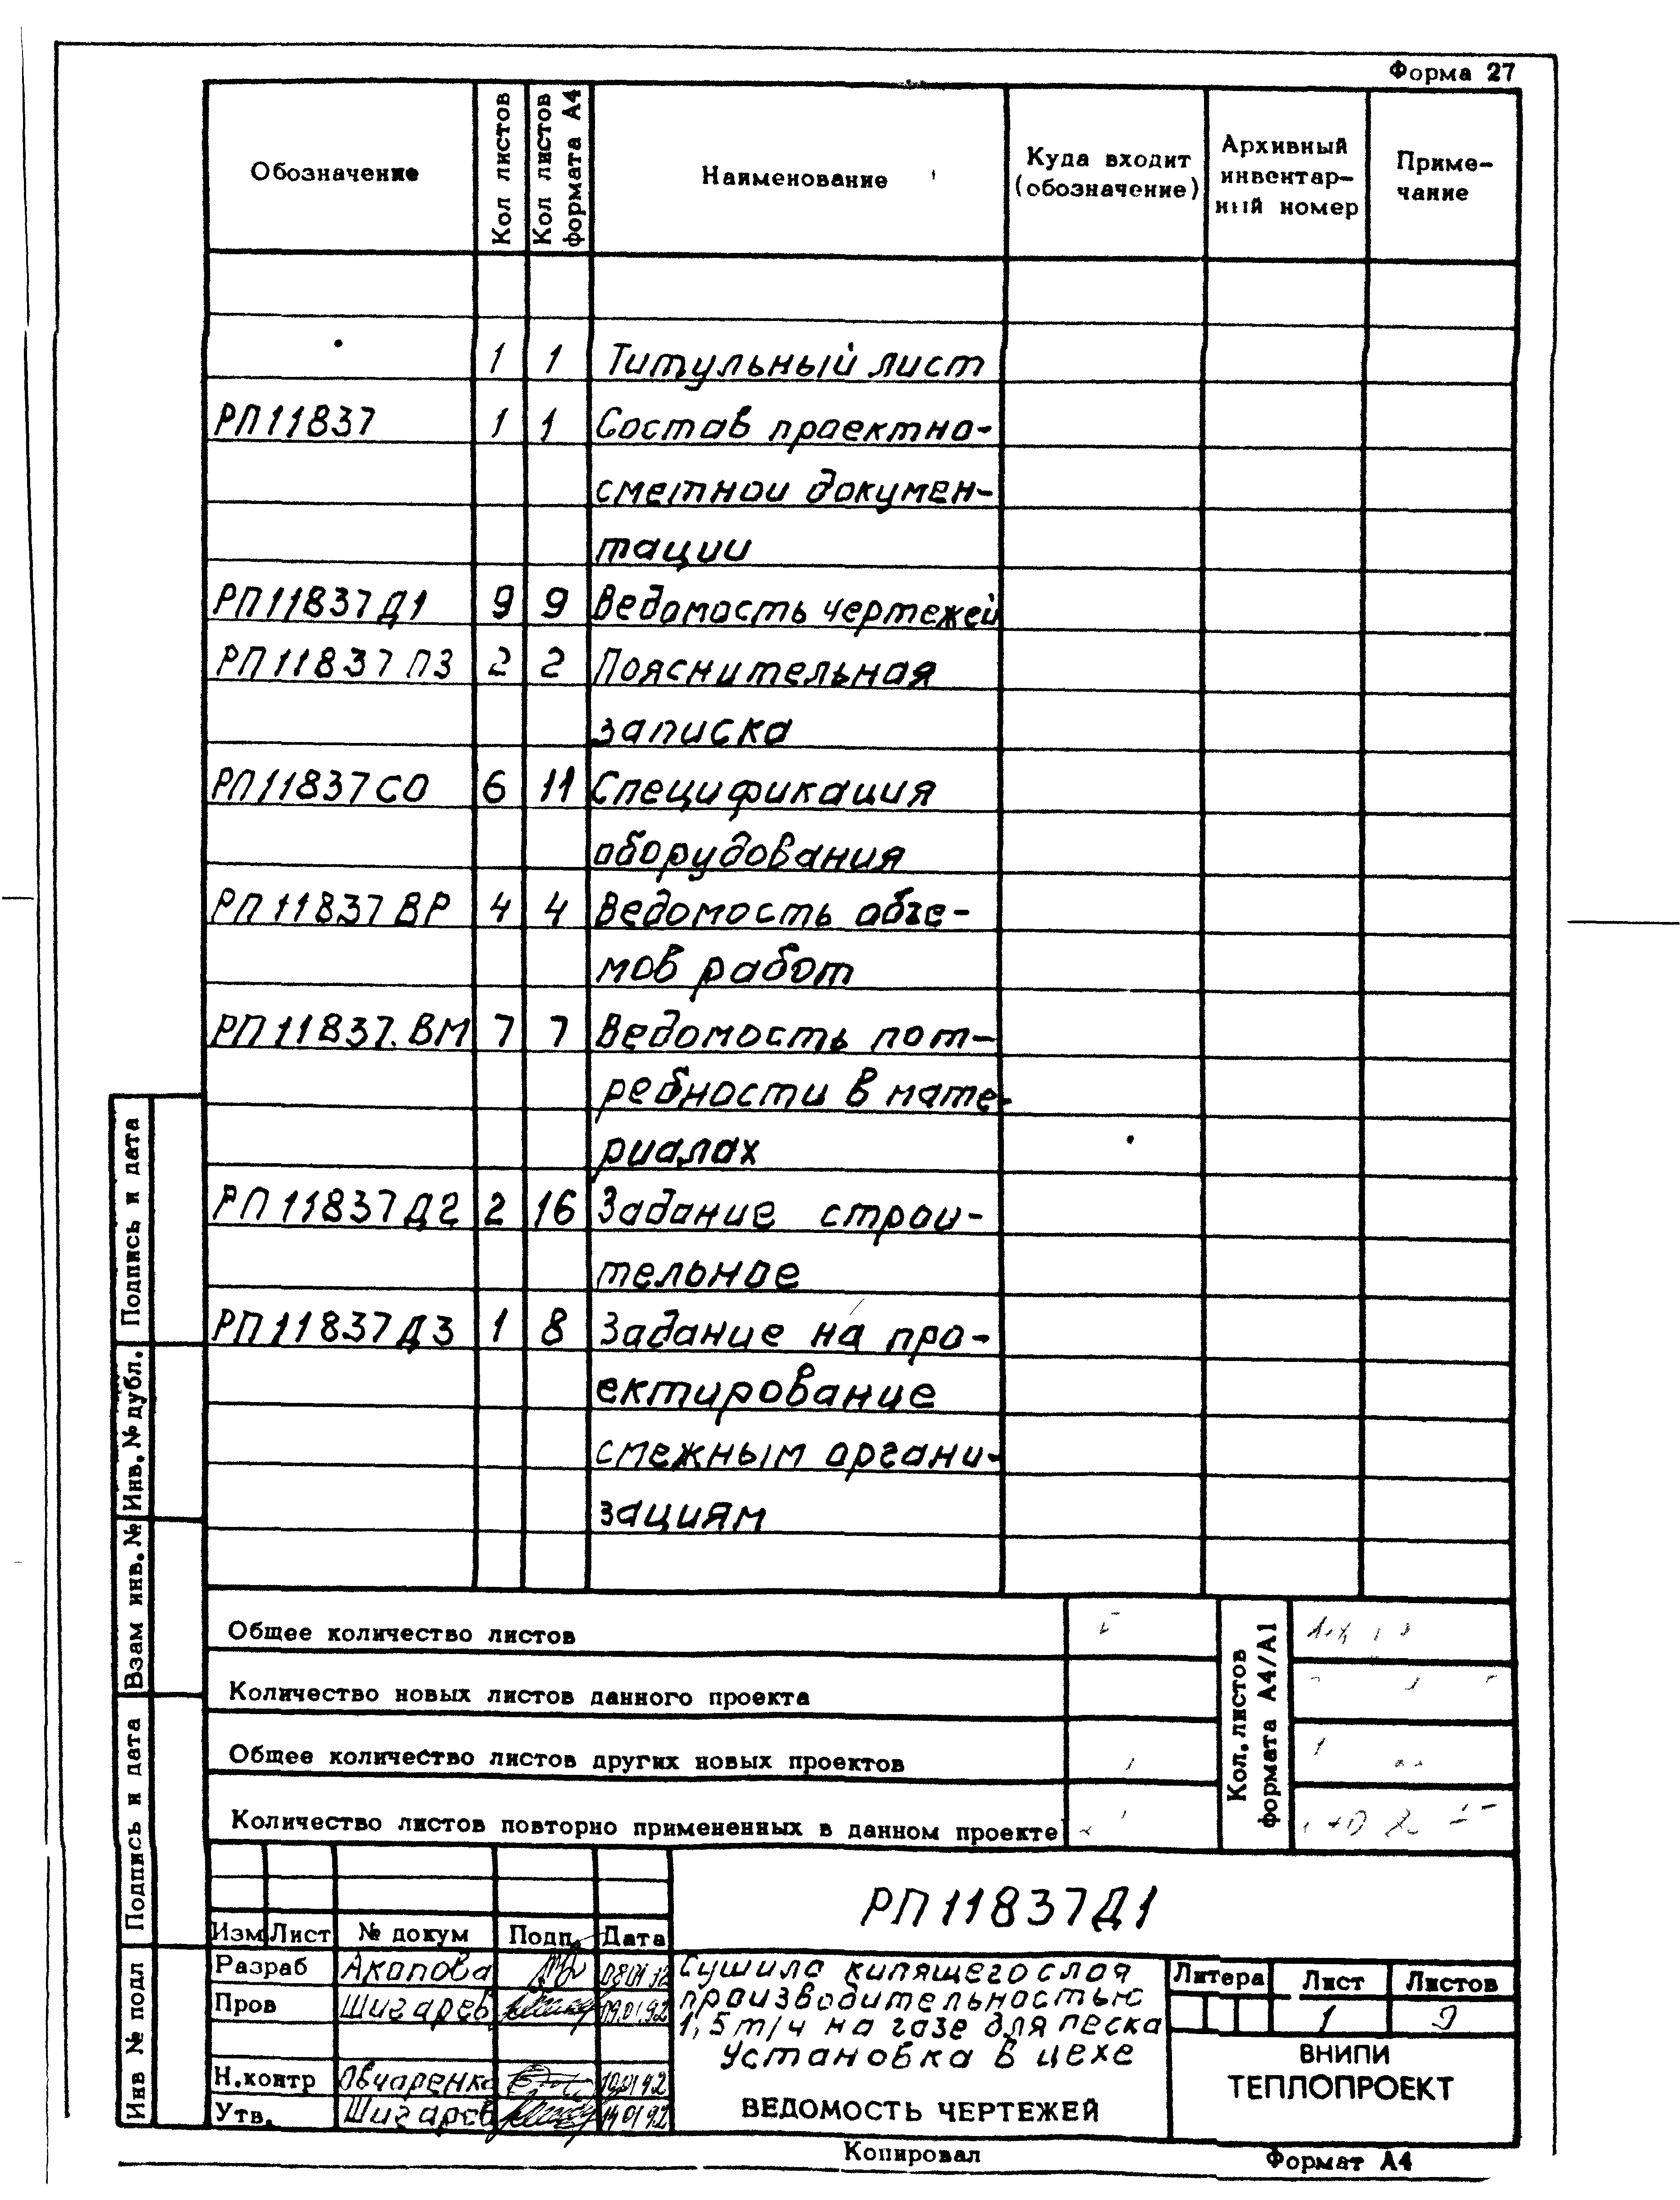 Форма 27
Обозначение
Кол листов
Кол листов формата А4
Наименование
Куда входит (обозначение)
Архивный инвентар- ный номер
Приме- чание
1 1 Титульный лист
РП11837 1 1 Состав проектно-
сметной докумен-
тации
РП11837Д1 9 9 Ведомость чертежей
РП11837 ПЗ 2 2 Пояснительная
записка
РП11837СО 6 11 Спецификация
оборудования
РП11837ВР 4 4 Ведомость объе-
мов работ
РП11837.ВМ 7 7 Ведомость пот-
ребности в мате-
риалах
РП11837Д2 2 16 Задание строи-
тельное
РП11837Д3 1 8 Задание на про-
ектирование
смежным органи-
зациям
Общее количество листов
Количество новых листов данного проекта
Общее количество листов других новых проектов
Количество листов повторно примененных в данном проекте
Кол. листов
формата А4/А1
Подпись и дата
Инв. № дубл.
Взам инв. №
Подпись и дата
Инв № подл
РП11837Д1
Изм Лист № докум Подп. Дата
Разраб Акопова
Пров Шигарев 09.01.92
Н.контр Овчаренко
Утв. Шигарев 14.01.92
Сушило кипящего слоя
производительностью
1,5т/ч на газе для песка
Установка в цехе
ВЕДОМОСТЬ ЧЕРТЕЖЕЙ
Литера Лист Листов
1 9
ВНИПИ
ТЕПЛОПРОЕКТ
Копировал
Формат А4